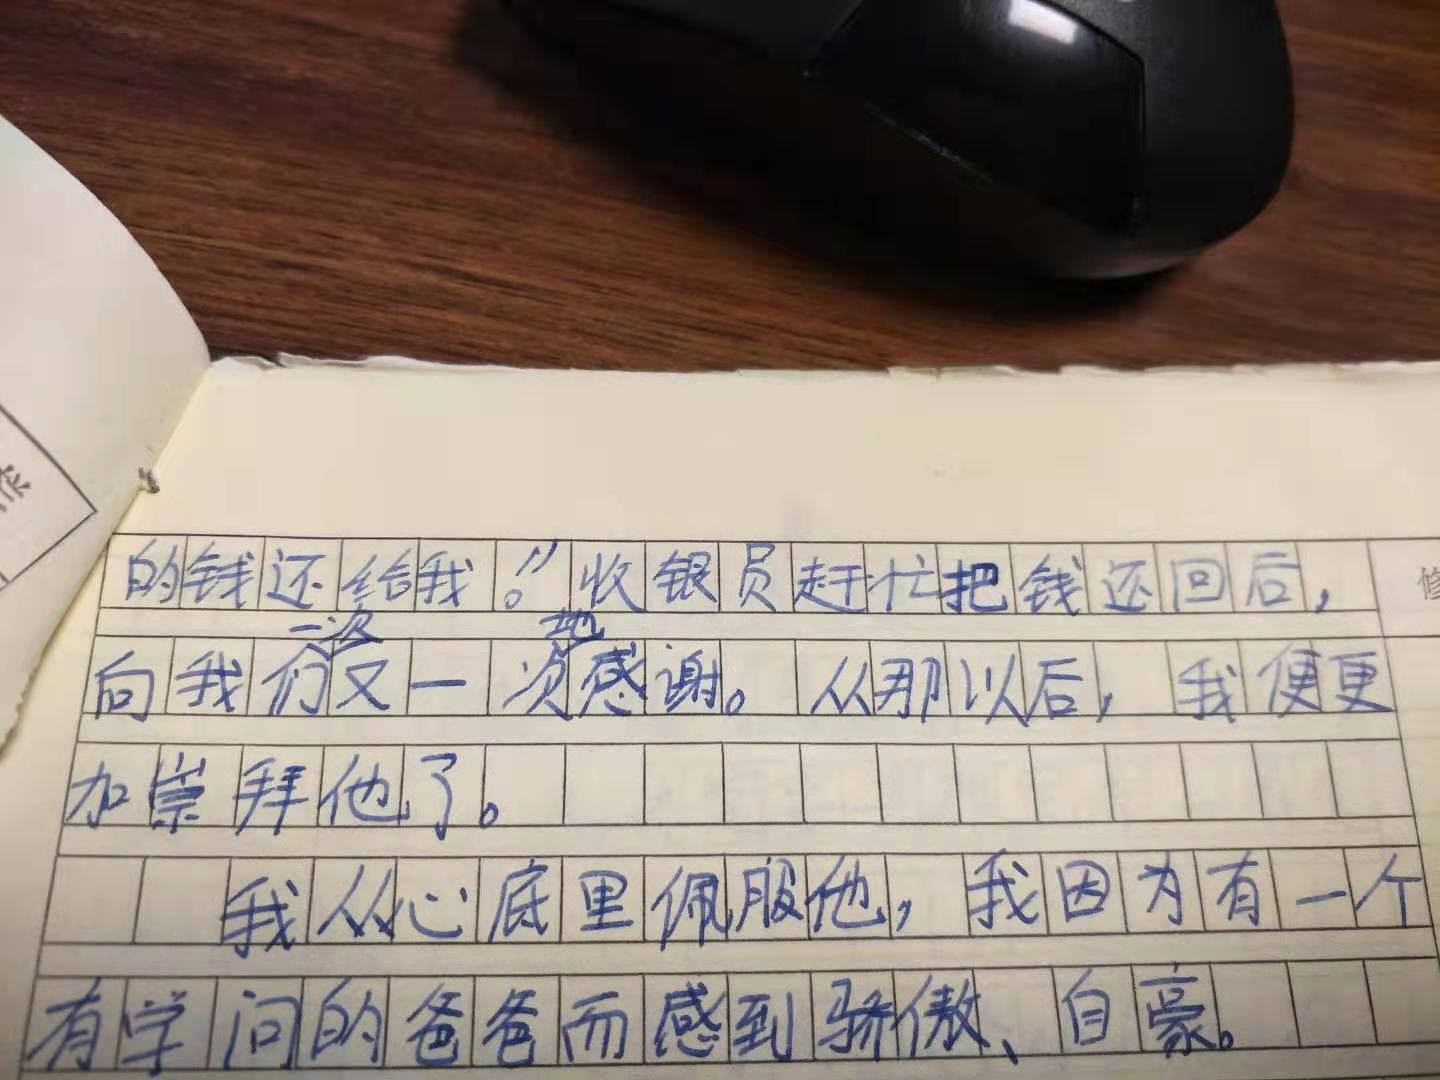 的钱还给我。”收银员赶忙把钱还回后，
一次 地
向我们又一次感谢。从那以后，我便更
加崇拜他了。
我从心底里佩服他，我因为有一个
有学问的爸爸而感到骄傲、自豪。
修